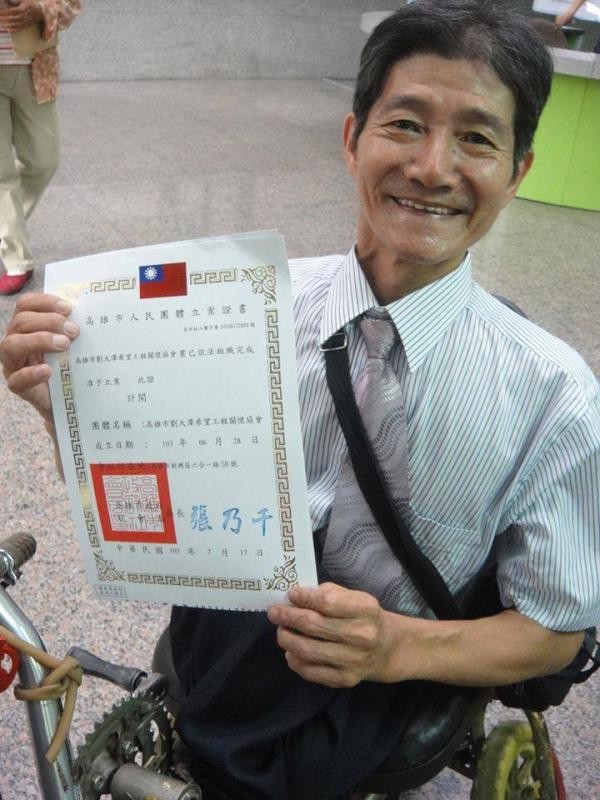 高雄市人民團體立案證書
高雄市劉大潭希望工程關懷協會業已依法組織完成
准予立案 此證
計開
團體名稱:高雄市劉大潭希望工程關懷協會
成立日期:103年06月28日
高雄市新興區六合一路50號
長 張乃千
中華民國103年7月17日